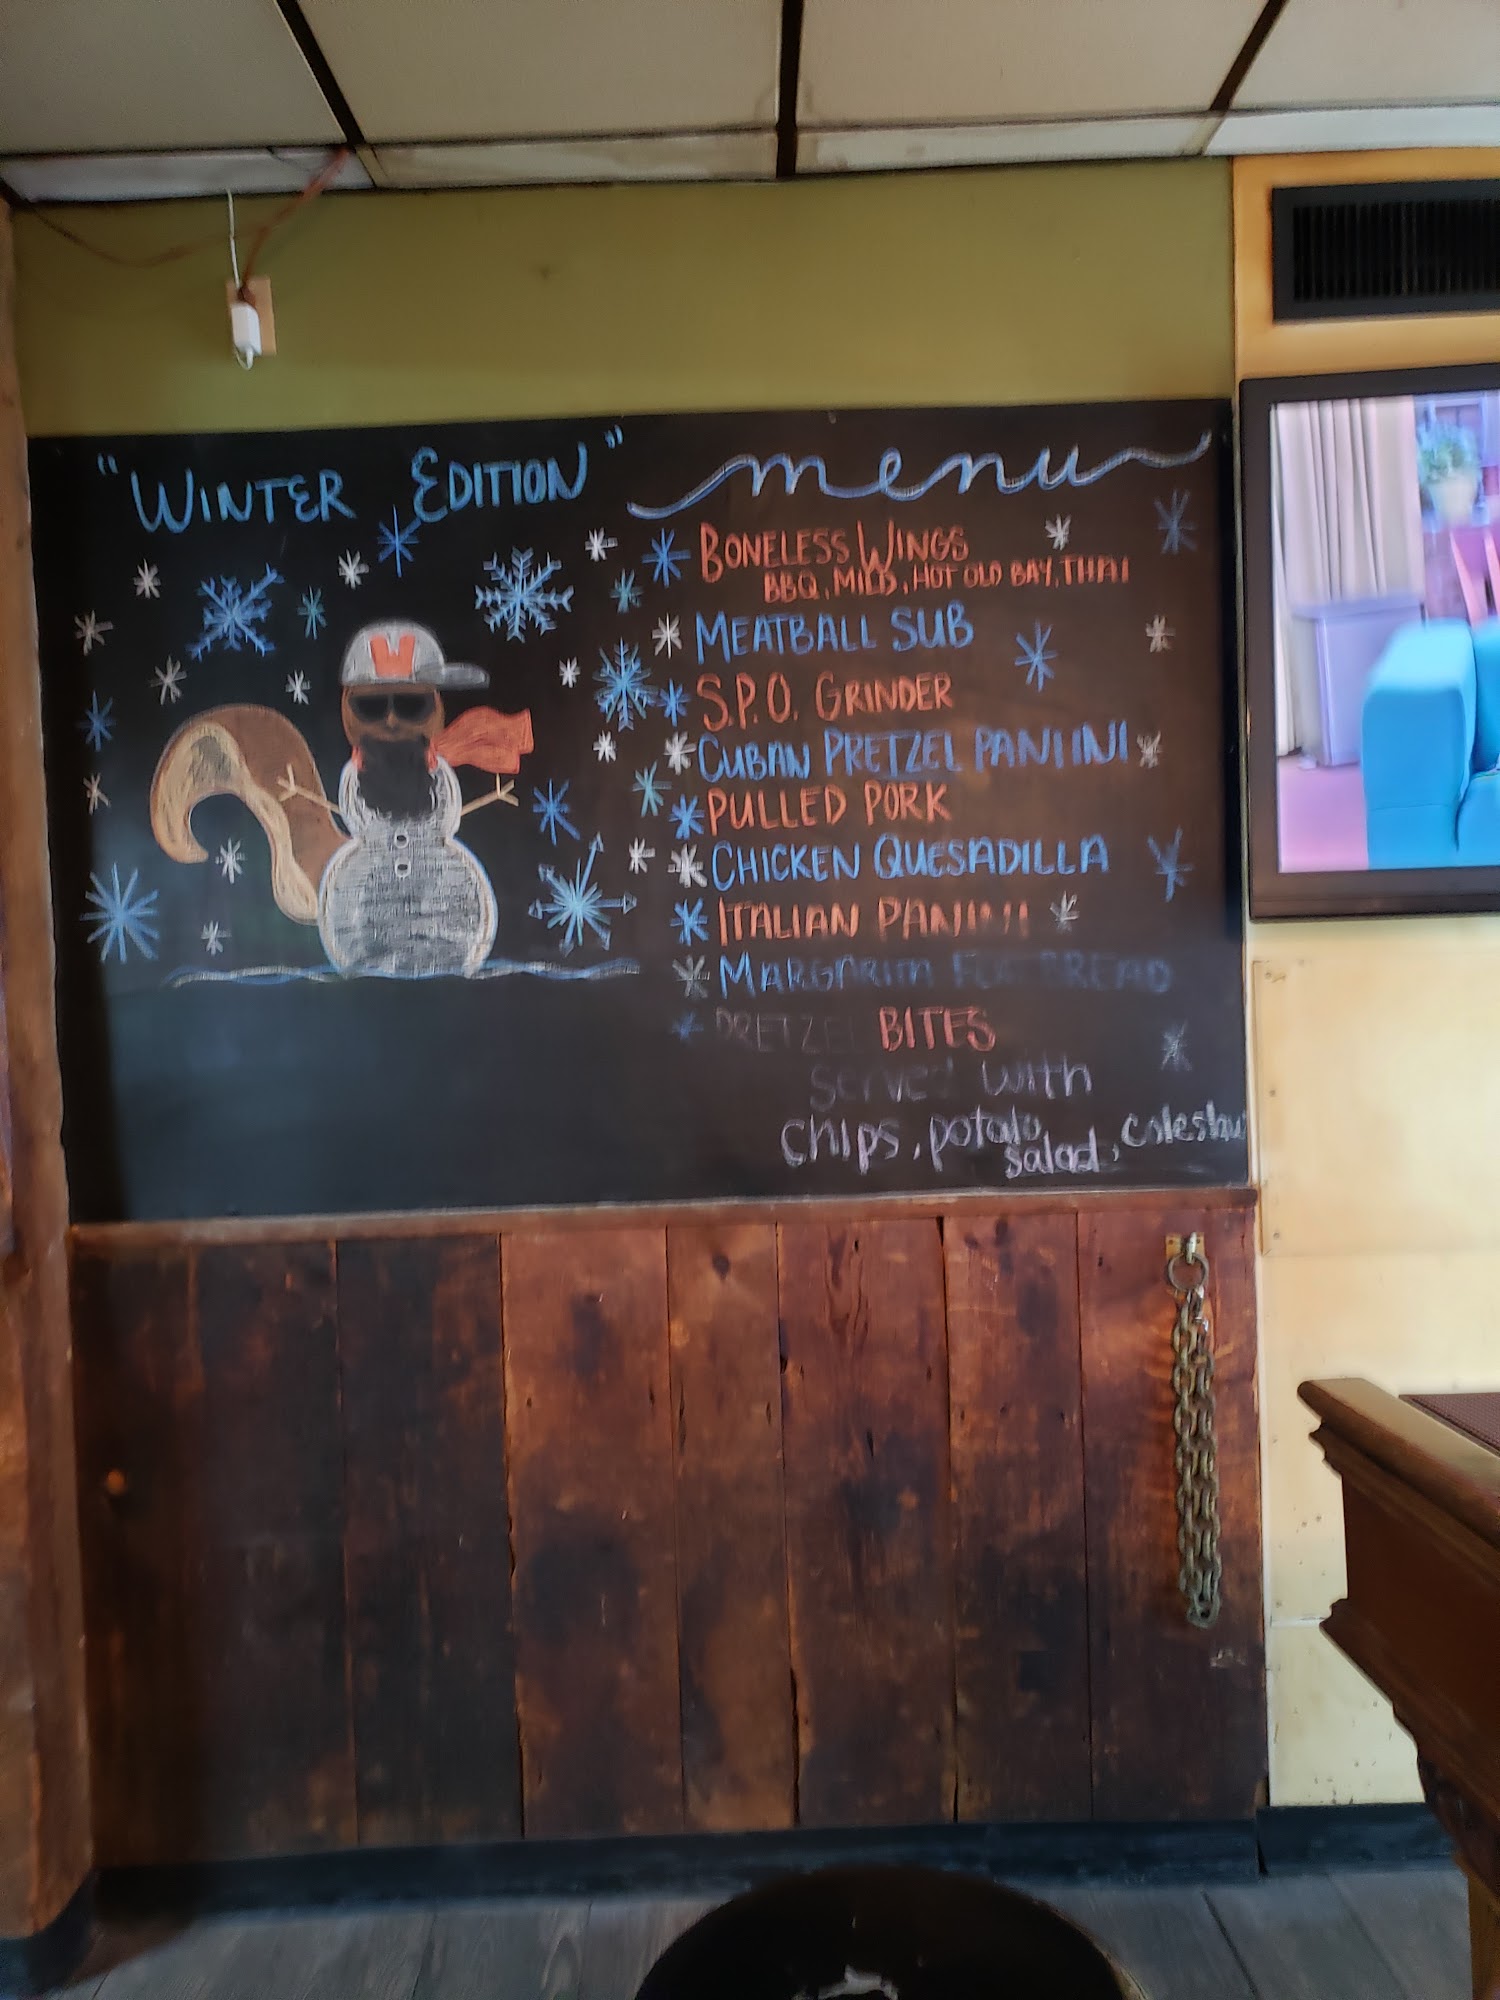 "WINTER EDITION" menu
W
BONELESS WINGS
BBQ, MILD, HOT OLD BAY, THAI
MEATBALL SUB
S.P.O. GRINDER
CUBAN PRETZEL PANIINI
PULLED PORK
CHICKEN QUESADILLA
ITALIAN PANINI
MARGARITA FLATBREAD
PRETZEL BITES
served with
chips, potato
salad, coleslaw